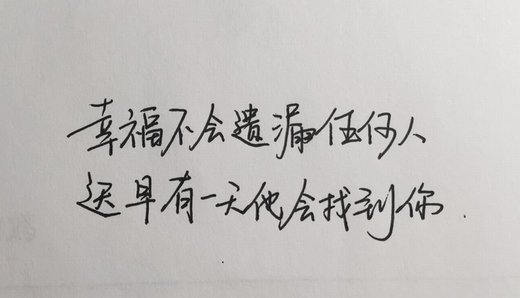 幸福不会遗漏任何人
迟早有一天他会找到你.